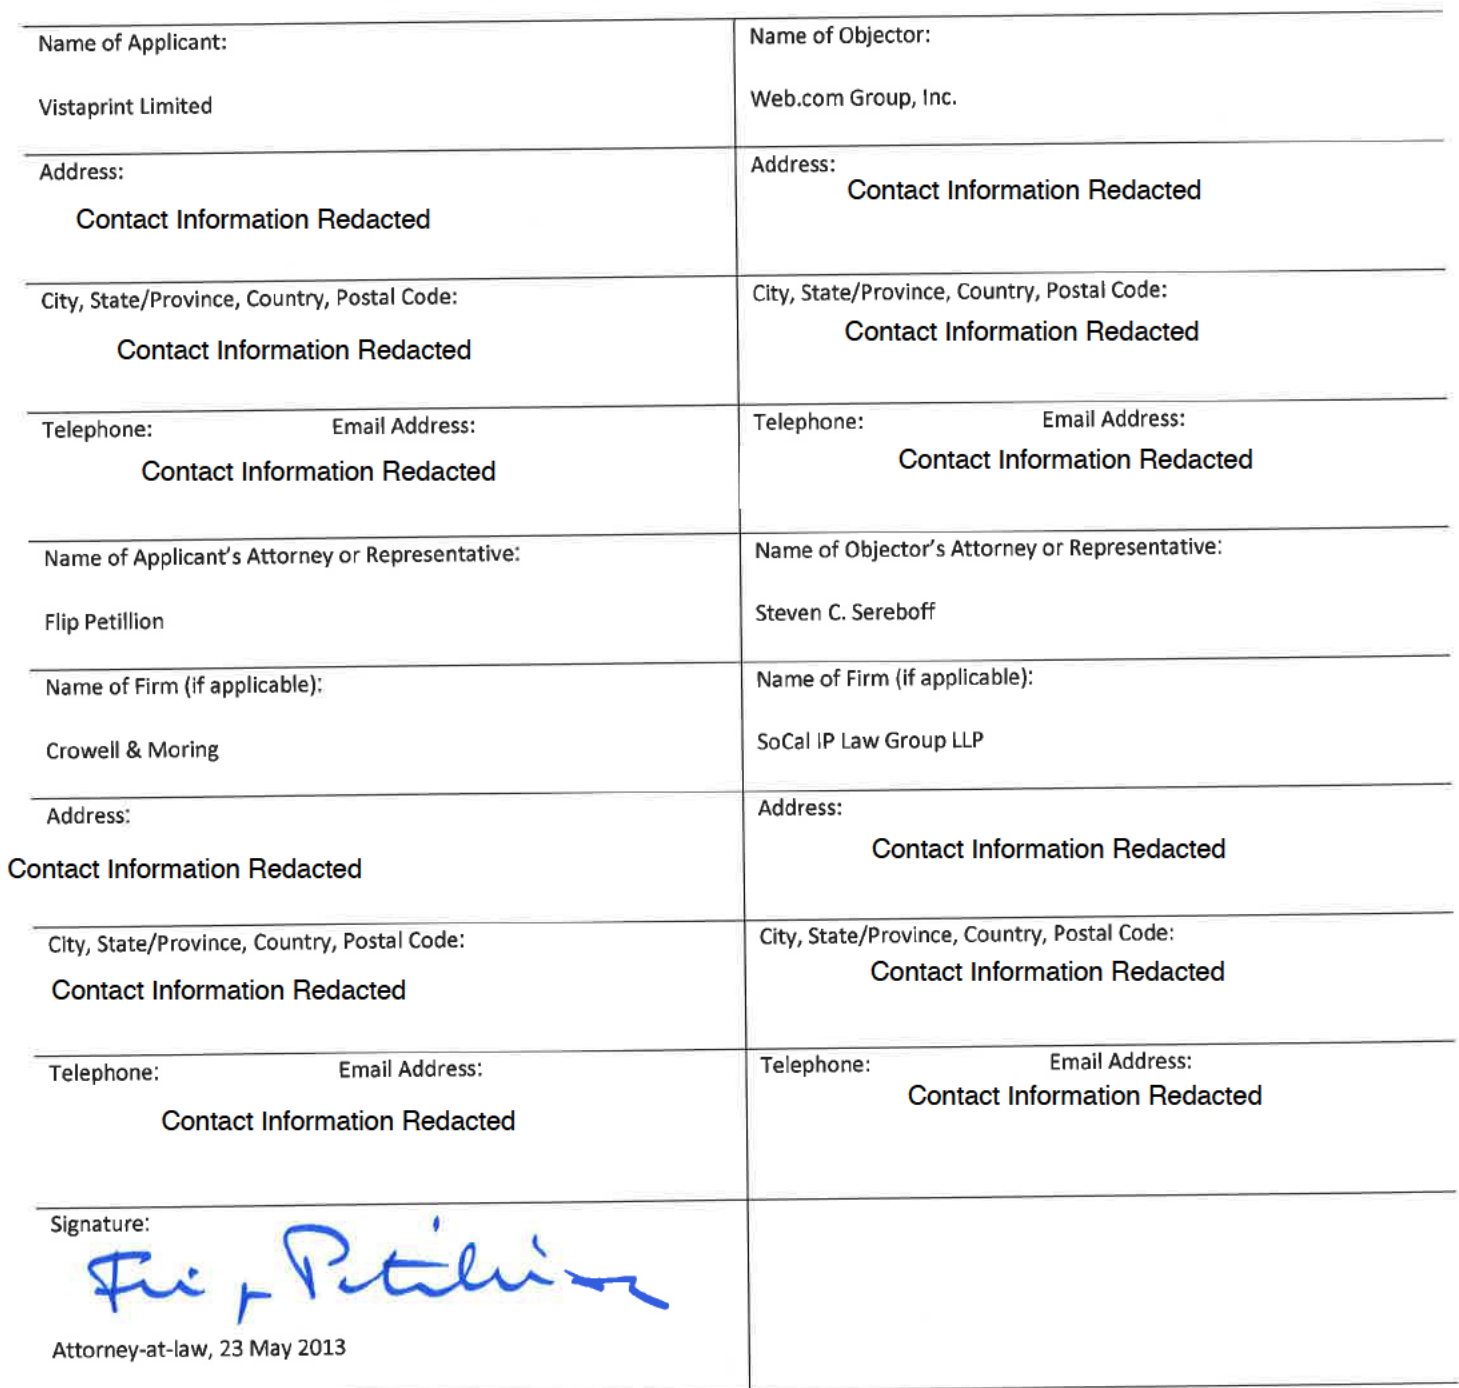 Name of Applicant:
Vistaprint Limited
Name of Objector:
Web.com Group, Inc.
Address:
Contact Information Redacted
Address:
Contact Information Redacted
City, State/Province, Country, Postal Code:
Contact Information Redacted
City, State/Province, Country, Postal Code:
Contact Information Redacted
Telephone: Email Address:
Contact Information Redacted
Telephone: Email Address:
Contact Information Redacted
Name of Applicant's Attorney or Representative:
Flip Petillion
Name of Objector's Attorney or Representative:
Steven C. Sereboff
Name of Firm (if applicable):
Crowell & Moring
Name of Firm (if applicable):
SoCal IP Law Group LLP
Address:
Contact Information Redacted
Address:
Contact Information Redacted
City, State/Province, Country, Postal Code:
Contact Information Redacted
City, State/Province, Country, Postal Code:
Contact Information Redacted
Telephone: Email Address:
Contact Information Redacted
Telephone: Email Address:
Contact Information Redacted
Signature:
Flip Petillion
Attorney-at-law, 23 May 2013